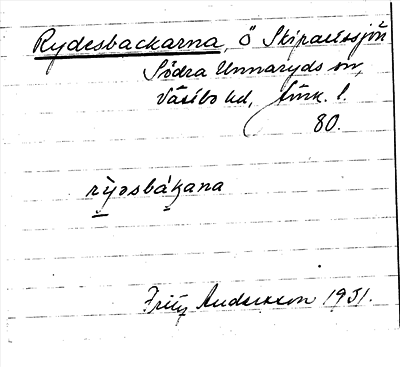 Rydesbackarna, Ö Skiparessjön
Södra Unnaryds sn,
Västbo hd, Jönk. l.
80.
rỳdsbákana
Fritz Andersson 1931.